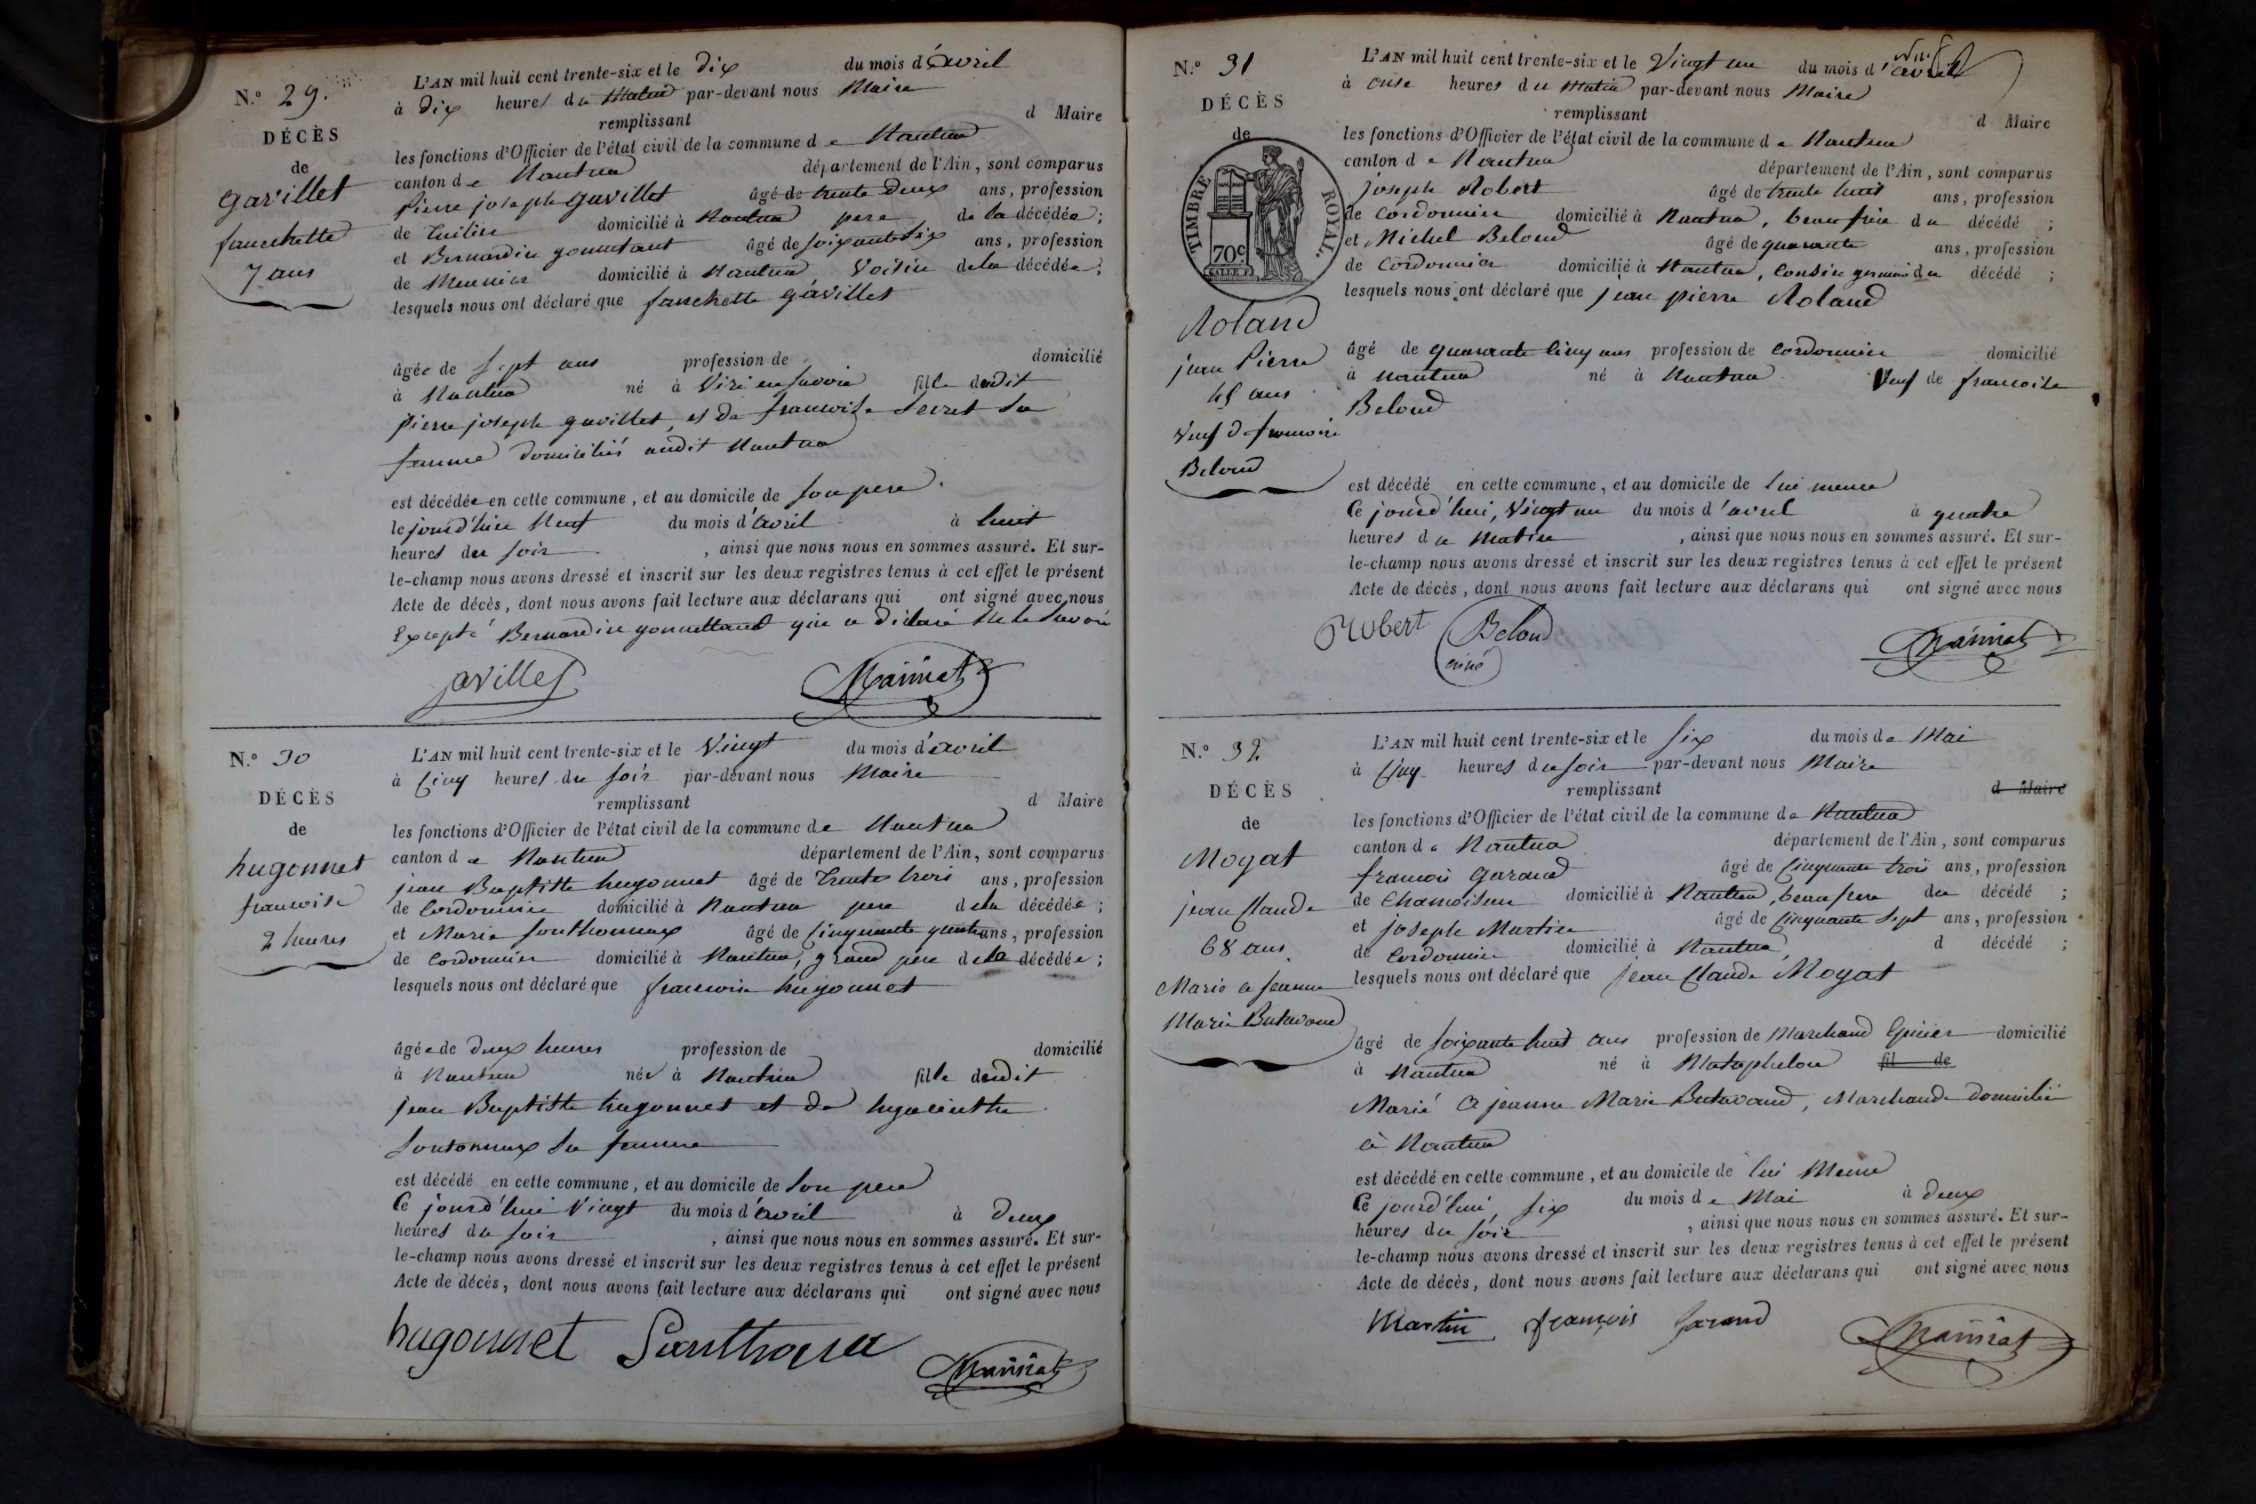 N.º 29.
DÉCÈS
de
gavillet
fanchette
7 ans
L'AN mil huit cent trente-six et le dix du mois d'avril
à dix heures du matin par-devant nous Maire
remplissant d Maire
les fonctions d'Officier de l'état civil de la commune de Nantua
canton de Nantua département de l'Ain, sont comparus
Pierre joseph gavillet âgé de trente deux ans, profession
de Tuilier domicilié à Nantua pere de la décédée ;
et Bernardin gonnetant âgé de soixante six ans, profession
de Meunier domicilié à Nantua Voisin de la décédée ;
lesquels nous ont déclaré que fanchette gavillet
âgée de sept ans profession de domicilié
à Nantua né à Viri en Savoie fille dudit
pierre joseph gavillet, et de francoise Secret sa
femme domiciliés audit Nantua
est décédée en cette commune, et au domicile de son pere
le jourd'hier Neuf du mois d'avril à huit
heures du soir , ainsi que nous nous en sommes assuré. Et sur-
le-champ nous avons dressé et inscrit sur les deux registres tenus à cet effet le présent
Acte de décès, dont nous avons fait lecture aux déclarans qui ont signé avec nous
Excepté Bernardin gonnettant qui a déclaré ne le savoir
gavillet Mainiat
N.º 30
DÉCÈS
de
hugonnet
francoise
2 heures
L'AN mil huit cent trente-six et le Vingt du mois d'avril
à Cinq heures du soir par-devant nous Maire
remplissant d Maire
les fonctions d'Officier de l'état civil de la commune de Nantua
canton de Nantua département de l'Ain, sont comparus
jean Baptiste hugonnet âgé de Trente trois ans, profession
de Cordonnier domicilié à Nantua pere de la décédée ;
et Marie Southonnax âgé de Cinquante quatre ans, profession
de Cordonnier domicilié à Nantua, grand pere de la décédée ;
lesquels nous ont déclaré que francoise hugonnet
âgée de deux heures profession de domicilié
à Nantua née à Nantua fille dudit
jean Baptiste hugonnet et de hyacinthe
Soutonnax sa femme
est décédé en cette commune, et au domicile de son pere
Ce jourd'hui Vingt du mois d'avril à Deux
heures du soir , ainsi que nous nous en sommes assuré. Et sur-
le-champ nous avons dressé et inscrit sur les deux registres tenus à cet effet le présent
Acte de décès, dont nous avons fait lecture aux déclarans qui ont signé avec nous
hugonnet Mainiat
N.º 31
DÉCÈS
de
TIMBRE ROYAL.
70c
Roland
jean Pierre
45 ans
Veuf de francoise
Beloud
L'AN mil huit cent trente-six et le Vingt un du mois d'avril
à onze heures du matin par-devant nous Maire
remplissant d Maire
les fonctions d'Officier de l'état civil de la commune de Nantua
canton de Nantua département de l'Ain, sont comparus
joseph Robert âgé de trente huit ans, profession
de cordonnier domicilié à Nantua, beau frère du décédé ;
et Michel Beloud âgé de quarante ans, profession
de Cordonnier domicilié à Nantua, Cousin germain du décédé ;
lesquels nous ont déclaré que jean pierre Roland
âgé de quarante Cinq ans profession de Cordonnier domicilié
à Nantua né à Nantua Veuf de francoise
Beloud
est décédé en cette commune, et au domicile de lui meme
Ce jourd'hui, Vingt un du mois d'avril à quatre
heures du Matin , ainsi que nous nous en sommes assuré. Et sur-
le-champ nous avons dressé et inscrit sur les deux registres tenus à cet effet le présent
Acte de décès, dont nous avons fait lecture aux déclarans qui ont signé avec nous
Robert Beloud Mainiat
ainé
N.º 32
DÉCÈS
de
Moyat
jean Claude
68 ans
Marié a jeanne
Marie Butavand
L'AN mil huit cent trente-six et le six du mois de Mai
à Cinq heures du soir par-devant nous Maire
remplissant d Maire
les fonctions d'Officier de l'état civil de la commune de Nantua
canton de Nantua département de l'Ain, sont comparus
francois garand âgé de Cinquante trois ans, profession
de Chamoiseur domicilié à Nantua, beaufrere du décédé ;
et joseph Martin âgé de Cinquante Sept ans, profession
de Cordonnier domicilié à Nantua, d décédé ;
lesquels nous ont déclaré que jean Claude Moyat
âgé de soixante huit ans profession de Marchand Epicier domicilié
à Nantua né à Mataphelon fil de
Marié a jeanne Marie Butavand, Marchande domicilié
à Nantua
est décédé en cette commune, et au domicile de lui Meme
Ce jourd'hui, six du mois de Mai à deux
heures du soir , ainsi que nous nous en sommes assuré. Et sur-
le-champ nous avons dressé et inscrit sur les deux registres tenus à cet effet le présent
Acte de décès, dont nous avons fait lecture aux déclarans qui ont signé avec nous
Martin françois garand Mainiat